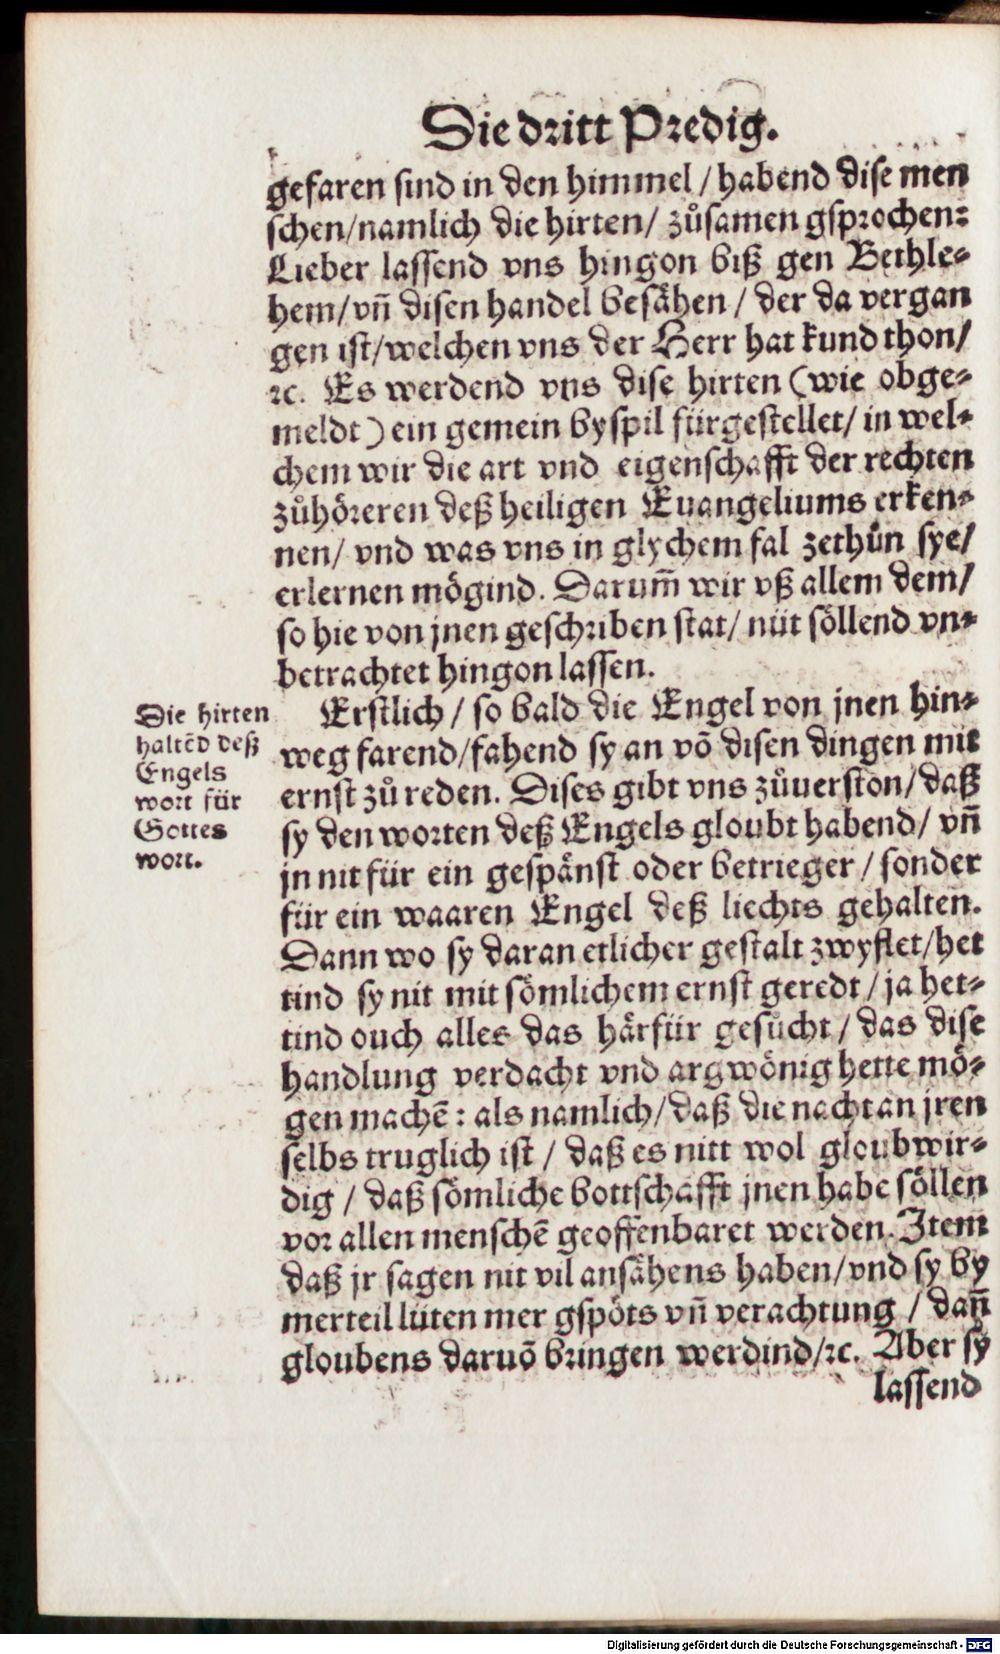 Die dritt Predig.
gefaren sind in den himmel / habend dise men
schen/namlich die hirten/ zůsamen gsprochen:
Lieber lassend vns hingon biß gen Bethle-
hem/vñ disen handel besähen / der da vergan
gen ist/welchen vns der Herr hat kund thon/
ꝛc. Es werdend vns dise hirten (wie obge-
meldt) ein gemein byspil fürgestellet/ in wel-
chem wir die art vnd eigenschafft der rechten
zůhöreren deß heiligen Euangeliums erken-
nen/ vnd was vns in glychem fal zethůn sye/
erlernen mögind. Darum̃ wir vß allem dem/
so hie von jnen geschriben stat/ nüt söllend vn-
betrachtet hingon lassen.
Erstlich / so bald die Engel von jnen hin-
weg farend/fahend sy an võ disen dingen mit
ernst zů reden. Dises gibt vns zůuerston/ daß
sy den worten deß Engels gloubt habend/ vñ
jn nit für ein gespänst oder betrieger / sonder
für ein waaren Engel deß liechts gehalten.
Dann wo sy daran etlicher gestalt zwyflet/het
tind sy nit mit sömlichem ernst geredt / ja het-
tind ouch alles das härfür gesücht / das dise
handlung verdacht vnd argwönig hette mö-
gen machẽ: als namlich/ daß die nacht an jren
selbs truglich ist / daß es nitt wol gloubwir-
dig / daß sömliche bottschafft jnen habe söllen
vor allen menschẽ geoffenbaret werden. Item
daß jr sagen nit vil ansähens haben/vnd sy by
merteil lüten mer gspöts vñ verachtung / dañ
gloubens daruõ bringen werdind/ꝛc. Aber sy
lassend
Die hirten
haltẽd deß
Engels
wort für
Gottes
wort.
Digitalisierung gefördert durch die Deutsche Forschungsgemeinschaft - DFG